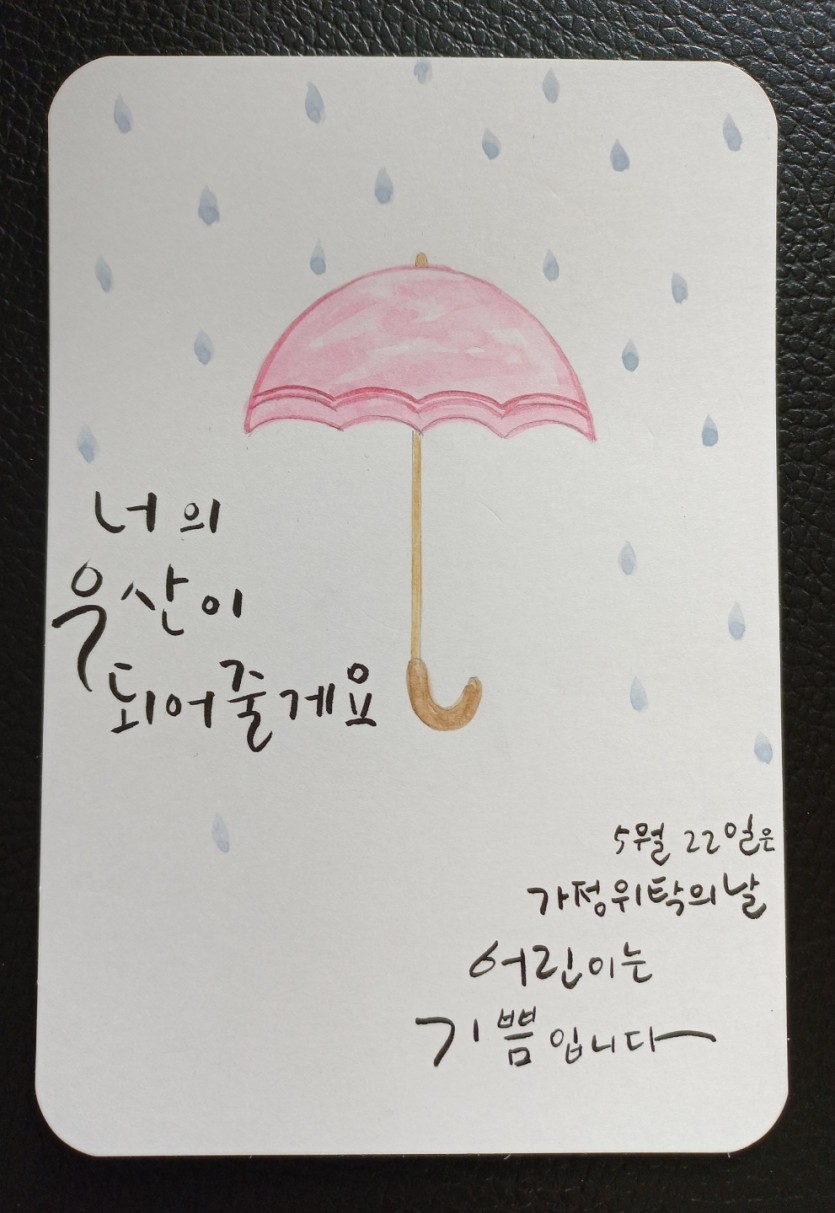 너의
우산이
되어줄게요
5월 22일은
가정위탁의날
어린이는
기쁨입니다